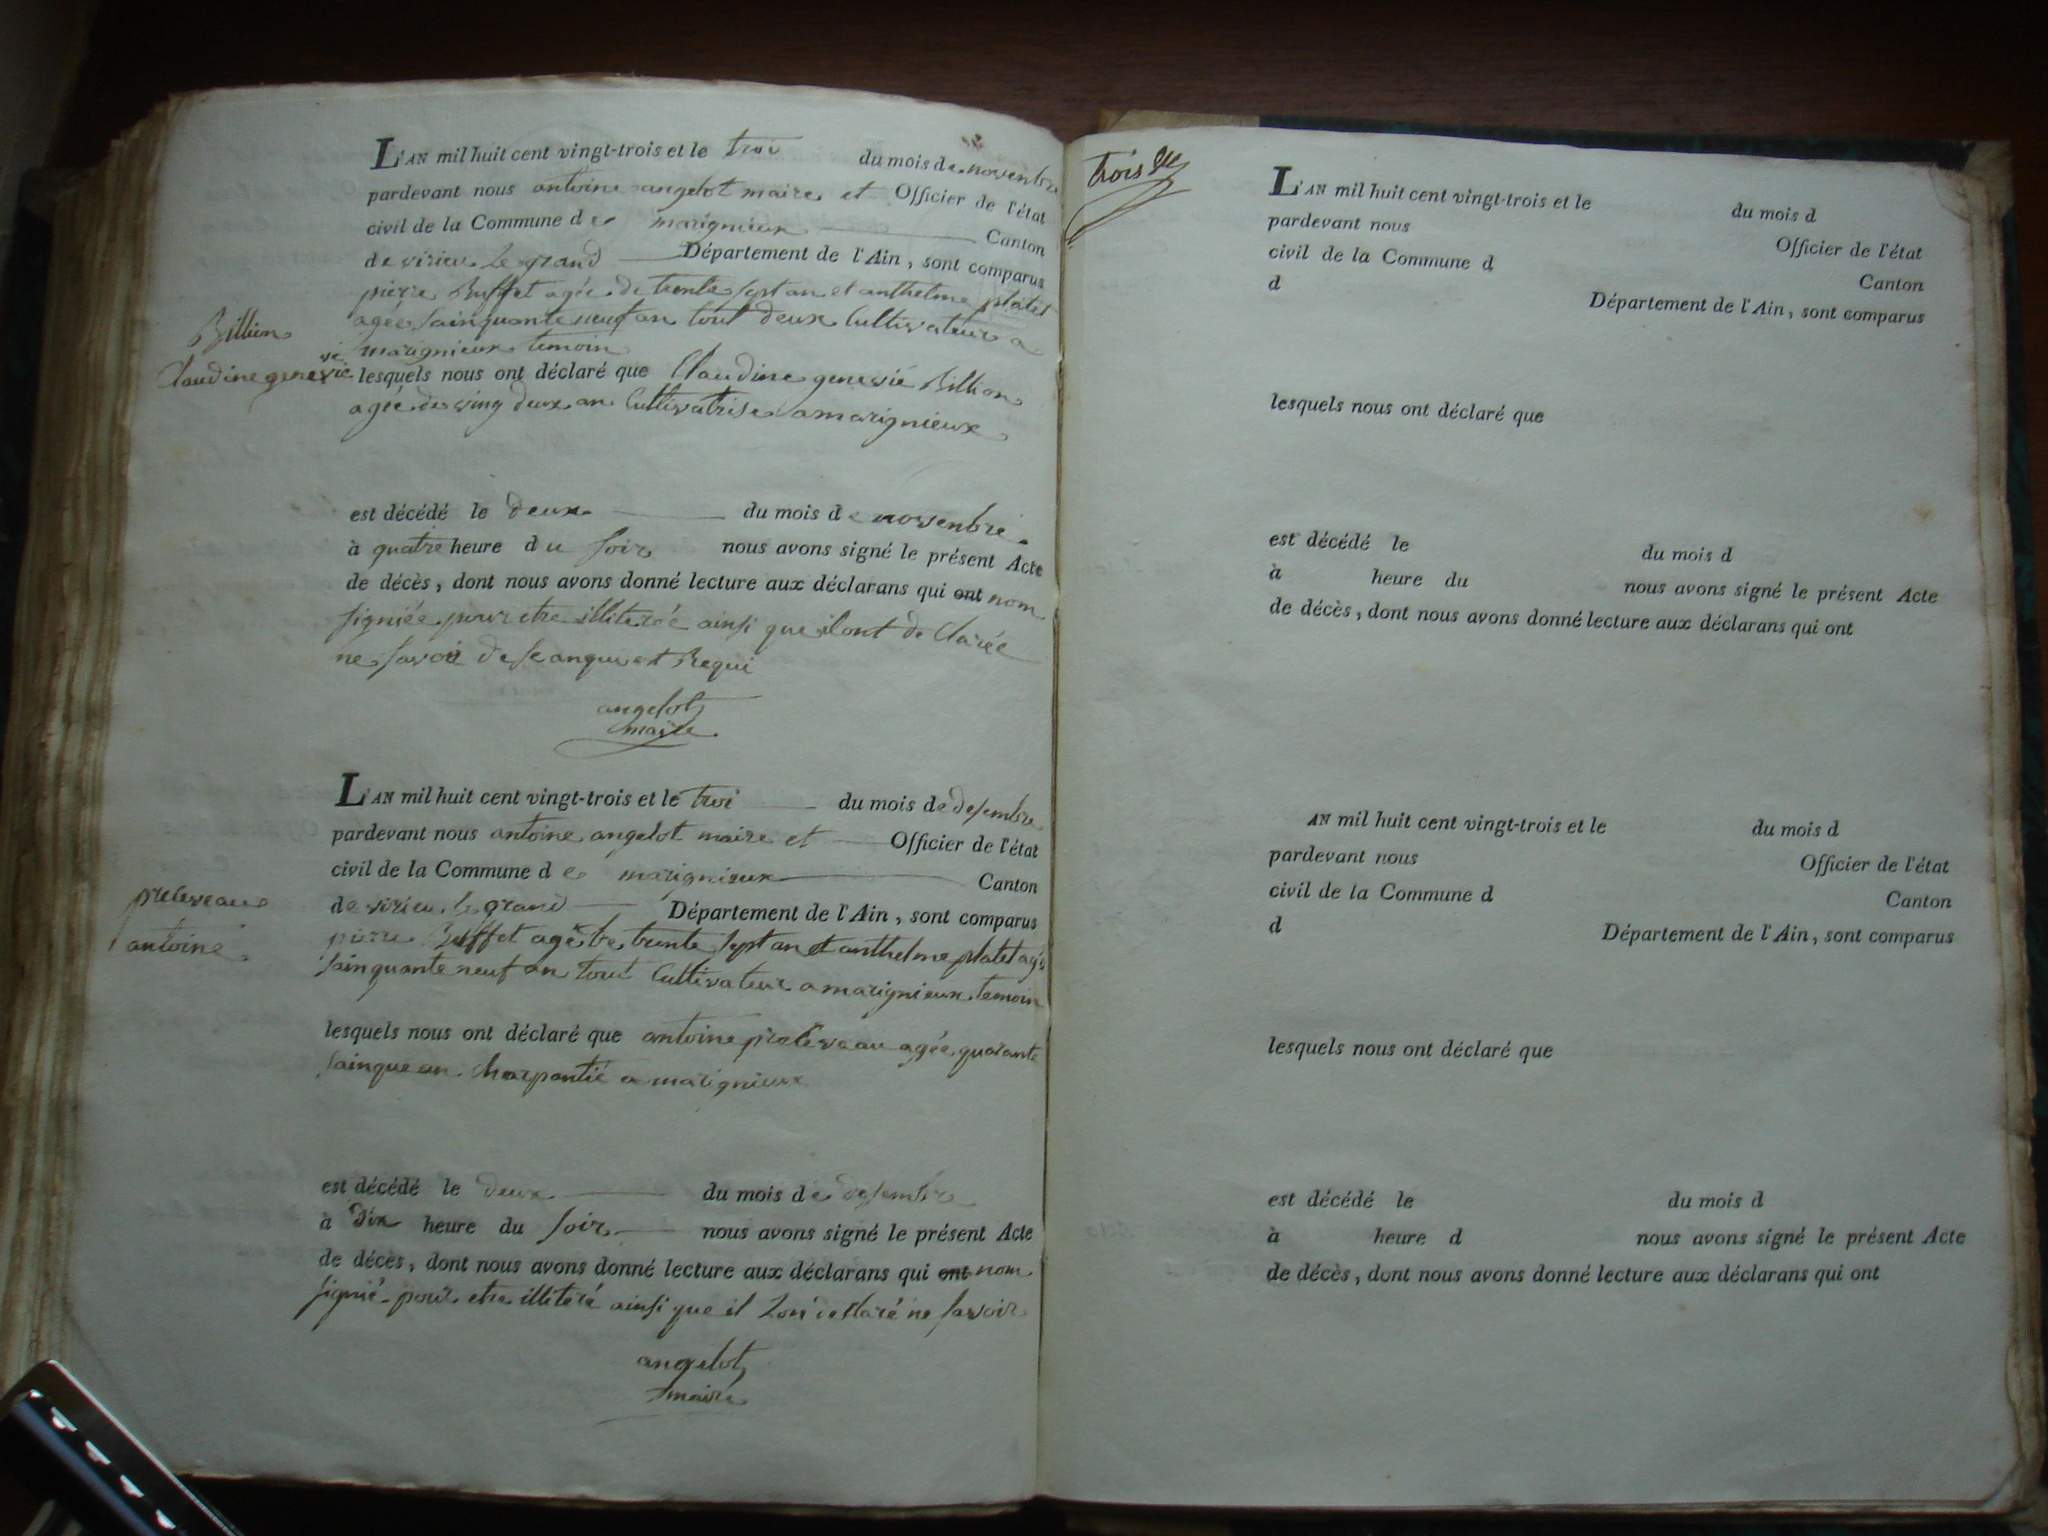 L'AN mil huit cent vingt-trois et le troi du mois de novembre
pardevant nous antoine angelot maire et Officier de l'état
civil de la Commune de marignieux Canton
de virieu le grand Département de l'Ain, sont comparus
pierre Buffet agée de trente sept an et anthelme platet
agée sainquante neuf an tout deux Cultivateur a
marignieux temoin
Billion
Claudine genevie
vié
lesquels nous ont déclaré que Claudine genevié Billion
agée de ving deux an Cultivatrise a marignieux
est décédé le deux du mois de novenbre
à quatre heure du soir nous avons signé le présent Acte
de décès, dont nous avons donné lecture aux déclarans qui ont nom
signiée pour etre illiteré ainsi que il ont de Clarée
ne savoir de se anque est Requi
angelot
maire
L'AN mil huit cent vingt-trois et le troi du mois de desembre
pardevant nous antoine angelot maire et Officier de l'état
civil de la Commune de marignieux Canton
de virieu le grand Département de l'Ain, sont comparus
preleveau
antoine
pierre Buffet agée de trente sept an et anthelme platet agé
sainquante neuf an tout Cultivateur a marignieux temoin
lesquels nous ont déclaré que antoine preleveau agée quarante
sainque an charpantié a marignieux
est décédé le deux du mois de desembre
à dix heure du soir nous avons signé le présent Acte
de décès, dont nous avons donné lecture aux déclarans qui ont nom
signié pour etre illiteré ainsi que il lon declaré ne savoir
angelot
maire
trois
L'AN mil huit cent vingt-trois et le du mois d
pardevant nous Officier de l'état
civil de la Commune d Canton
d Département de l'Ain, sont comparus
lesquels nous ont déclaré que
est décédé le du mois d
à heure du nous avons signé le présent Acte
de décès, dont nous avons donné lecture aux déclarans qui ont
AN mil huit cent vingt-trois et le du mois d
pardevant nous Officier de l'état
civil de la Commune d Canton
d Département de l'Ain, sont comparus
lesquels nous ont déclaré que
est décédé le du mois d
à heure d nous avons signé le présent Acte
de décès, dont nous avons donné lecture aux déclarans qui ont